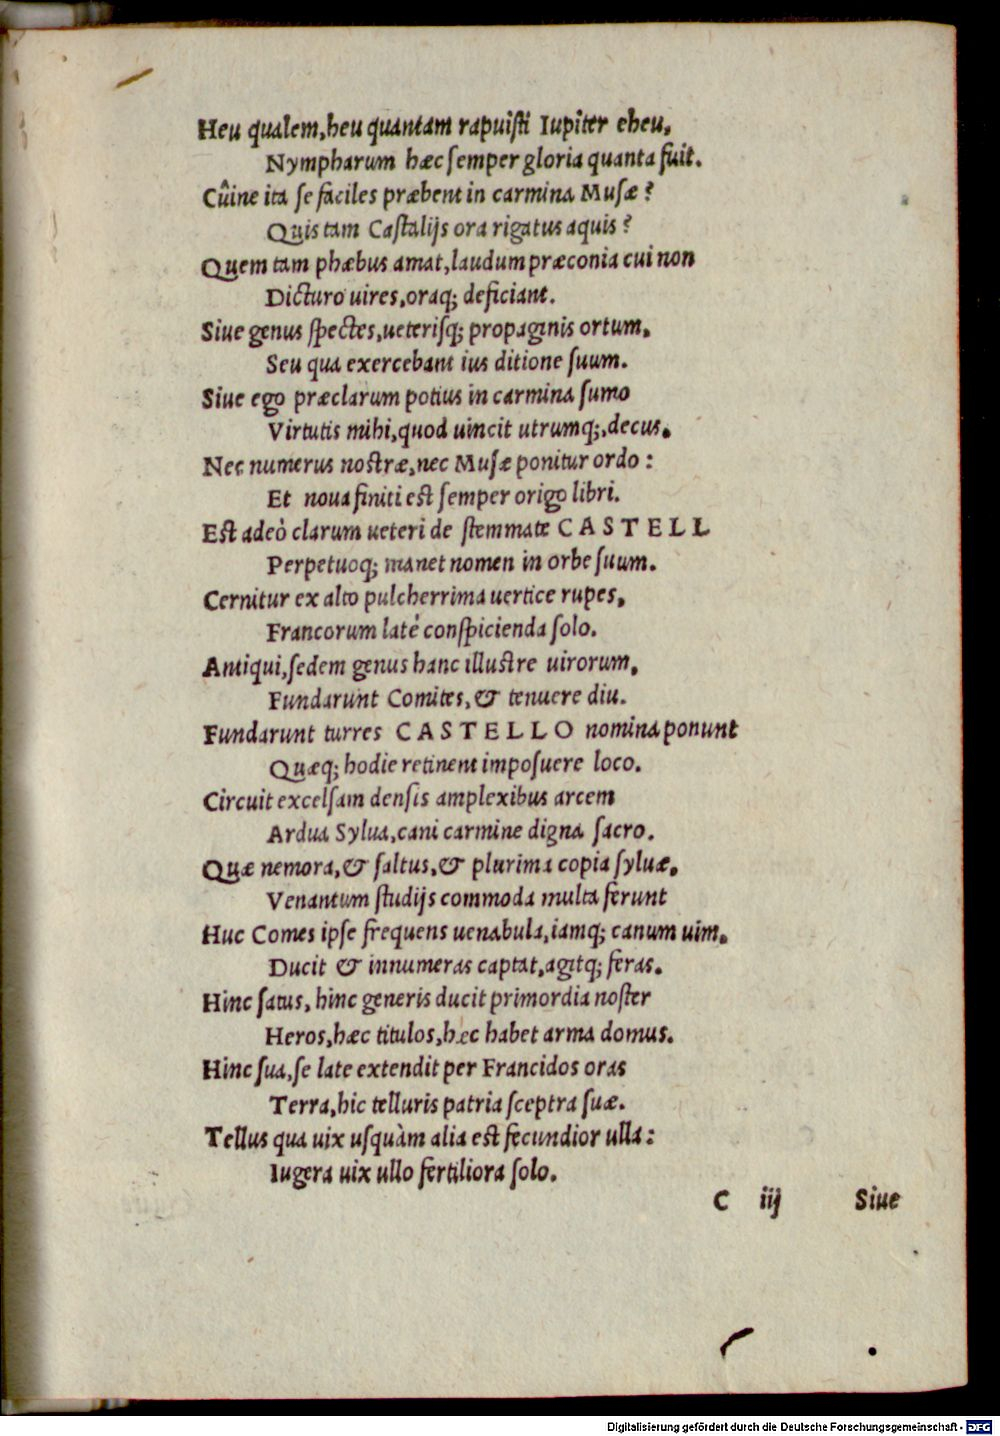 Heu qualem, heu quantam rapuisti Iupiter eheu,
Nympharum hæc semper gloria quanta fuit.
Cûine ita se faciles præbent in carmina Musæ?
Quis tam Castalijs ora rigatus aquis?
Quem tam phæbus amat, laudum præconia cui non
Dicturo uires, oraq; deficiant.
Siue genus spectes, ueterisq; propaginis ortum,
Seu qua exercebant ius ditione suum.
Siue ego præclarum potius in carmina sumo
Virtutis mihi, quod uincit utrumq;, decus.
Nec numerus nostræ, nec Musæ ponitur ordo:
Et noua finiti est semper origo libri.
Est adeò clarum ueteri de stemmate CASTELL
Perpetuoq; manet nomen in orbe suum.
Cernitur ex alto pulcherrima uertice rupes,
Francorum latè conspicienda solo.
Antiqui, sedem genus hanc illustre uirorum,
Fundarunt Comites, & tenuere diu.
Fundarunt turres CASTELLO nomina ponunt
Quæq; hodie retinent imposuere loco.
Circuit excelsam densis amplexibus arcem
Ardua Sylua, cani carmine digna sacro.
Quæ nemora, & saltus, & plurima copia syluæ,
Venantum studijs commoda multa ferunt
Huc Comes ipse frequens uenabula, iamq; canum uim,
Ducit & innumeras captat, agitq; feras.
Hinc satus, hinc generis ducit primordia noster
Heros, hæc titulos, hæc habet arma domus.
Hinc sua, se late extendit per Francidos oras
Terra, hic telluris patria sceptra suæ.
Tellus qua uix usquàm alia est fecundior ulla:
Iugera uix ullo fertiliora solo.
C iij Siue
Digitalisierung gefördert durch die Deutsche Forschungsgemeinschaft - DFG